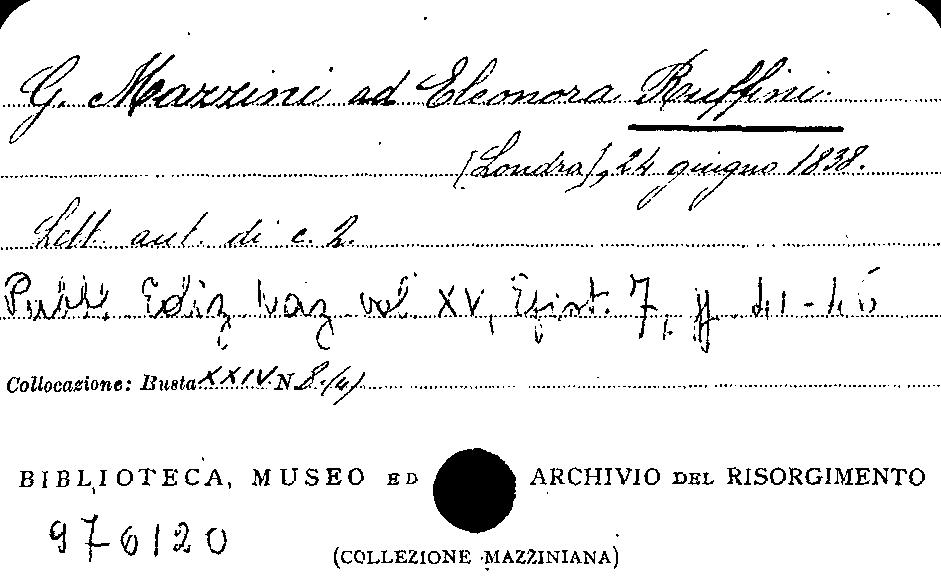 G. Mazzini ad Eleonora Ruffini.
[Londra], 24 giugno 1838.
Lett. aut. di c. 2.
Pubbl. Ediz. Naz. vol. XV, Epist. 7, pp. 41-46
Collocazione: Busta XXIV N 8.(4)
BIBLIOTECA, MUSEO ED ARCHIVIO DEL RISORGIMENTO
976120
(COLLEZIONE MAZZINIANA)